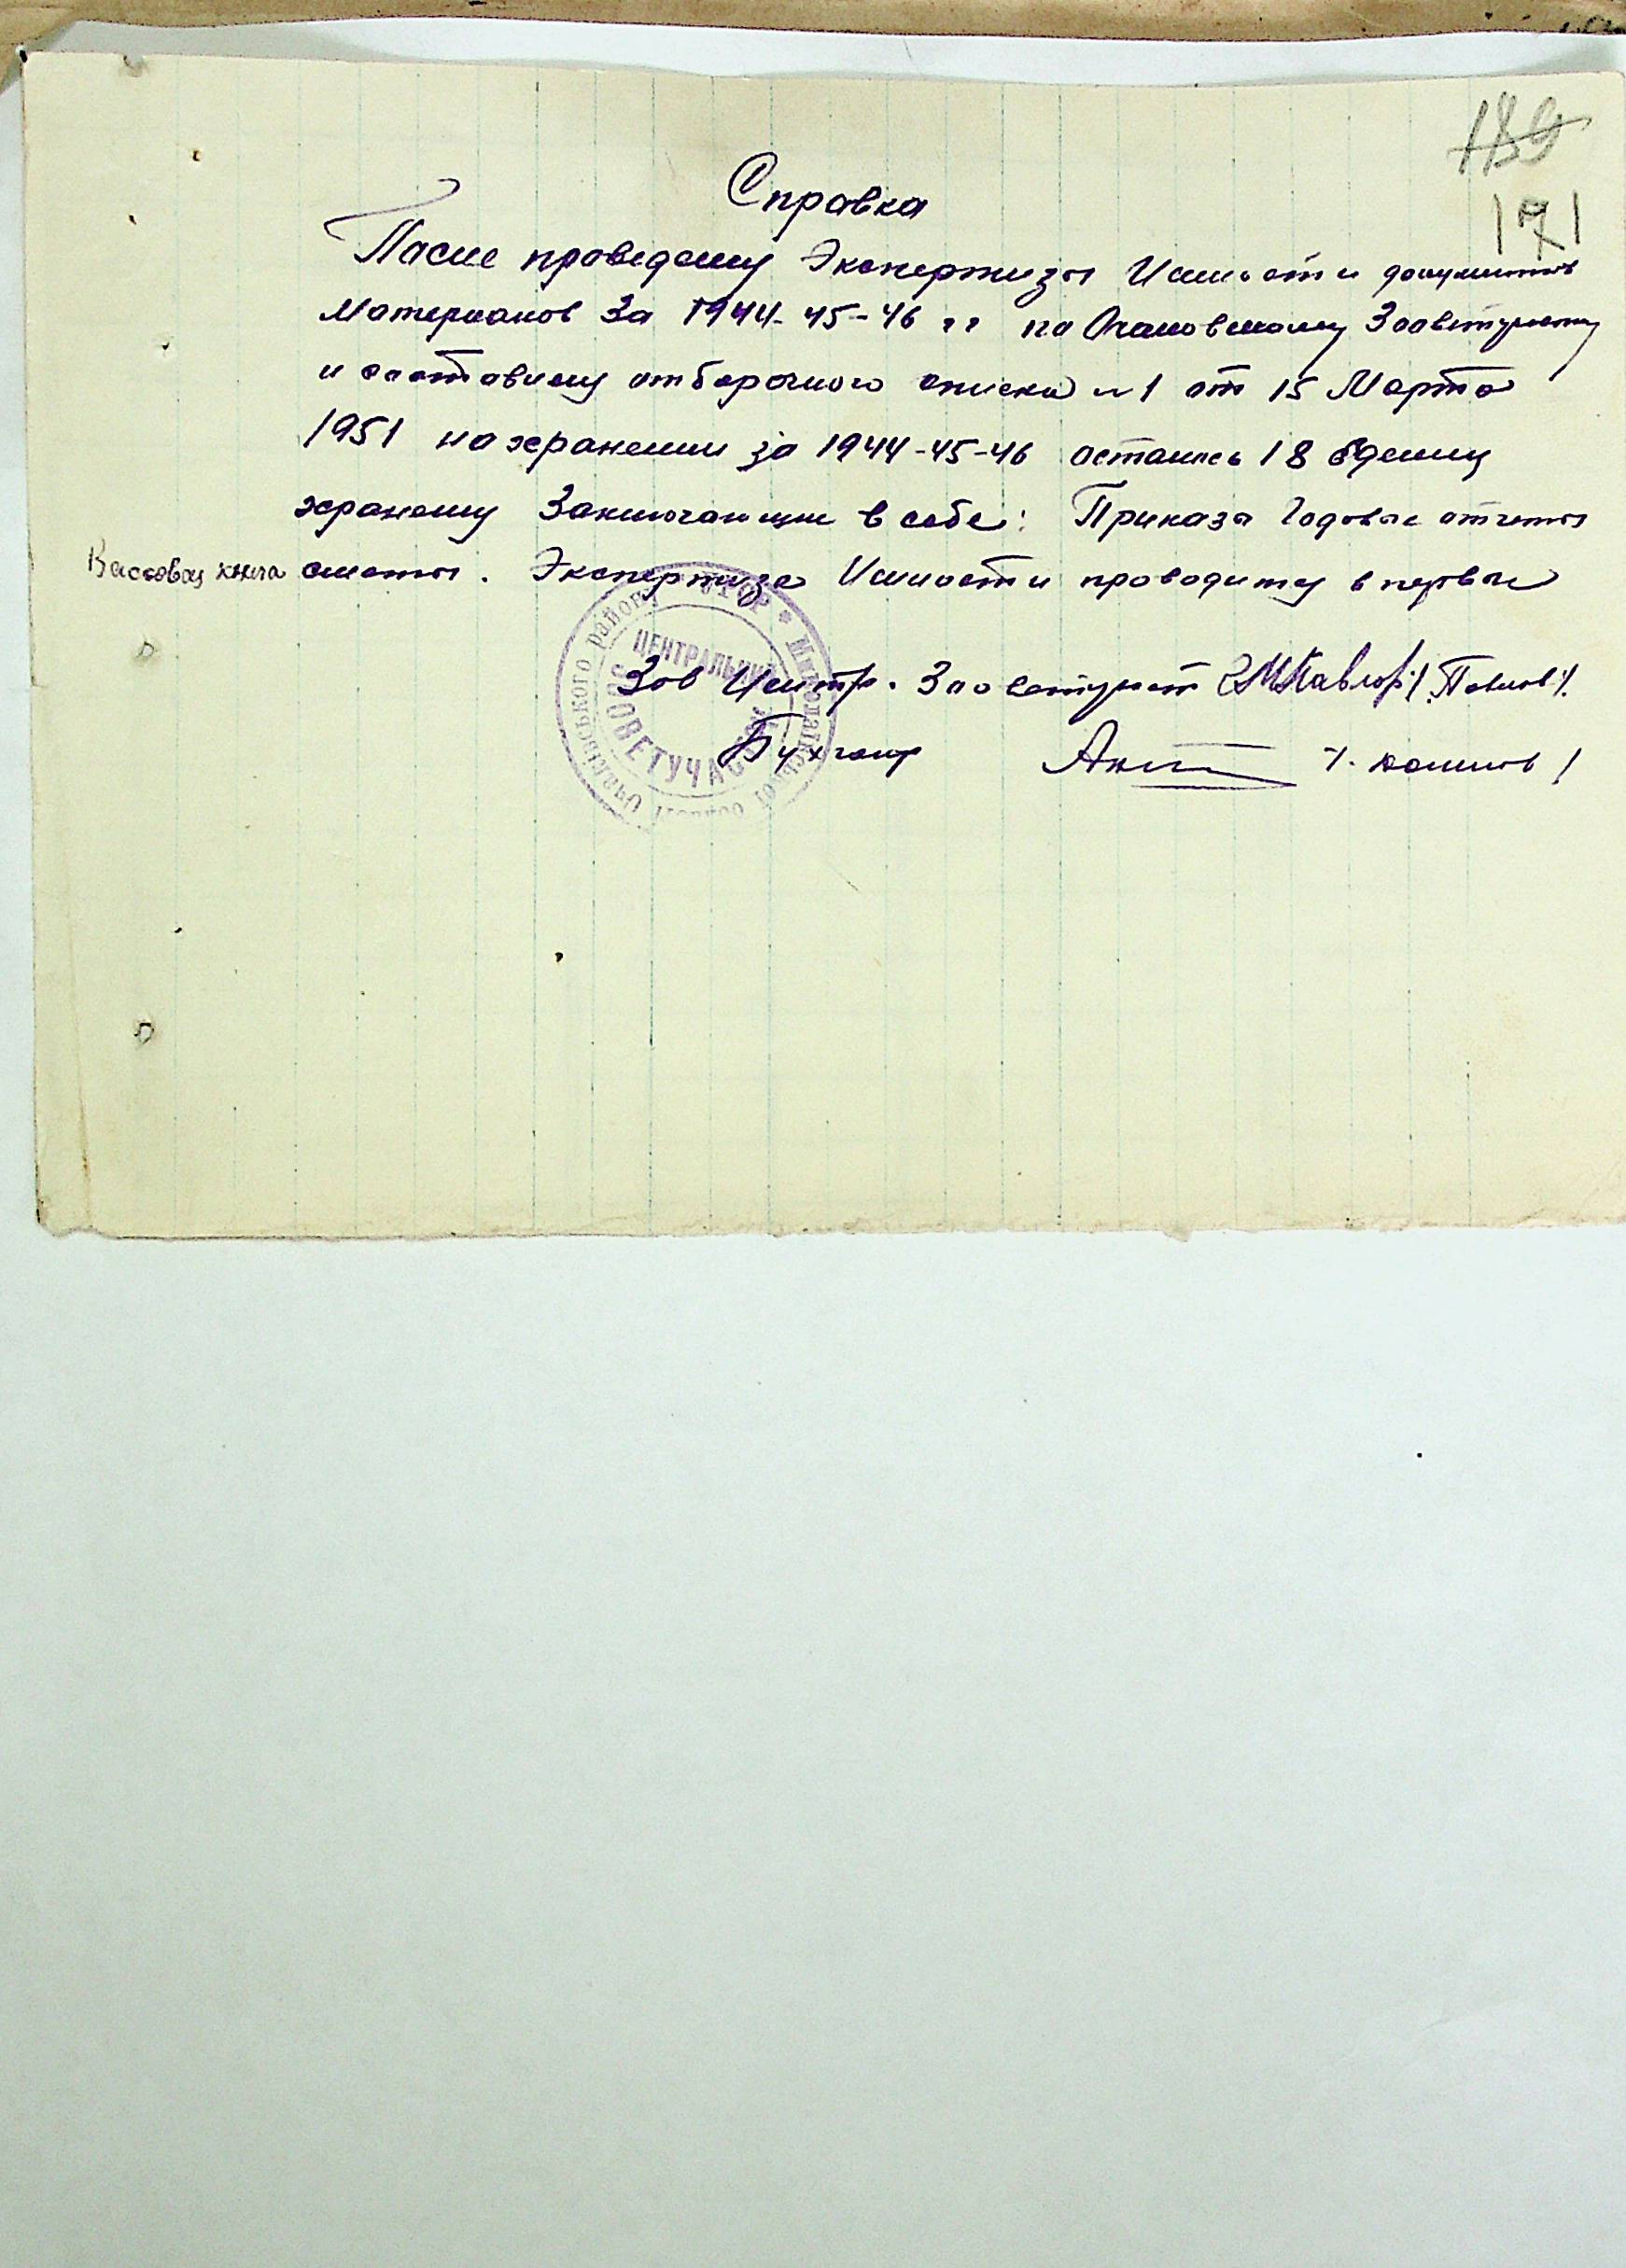 189
171
Справка
После проведену Экспертизы Ценности документов
Материалов За 1944-45-46 гг по Очаковскому Зооветучастку
и составлену отборочного списка №1 от 15 Марта
1951 на хранении за 1944-45-46 осталось 18 едениц
хранену Заключающие в себе: Приказы Годовые отчеты
Кассовая книга сметы. Экспертиза Ценности проводиту впервые
Зав Центр. Зооветучаст Павлов /.Павлов/.
Бухгалтер
ЦЕНТРАЛЬНИЙ
ЗООВЕТУЧАСТОК
Очаківського району
Миколаївської області